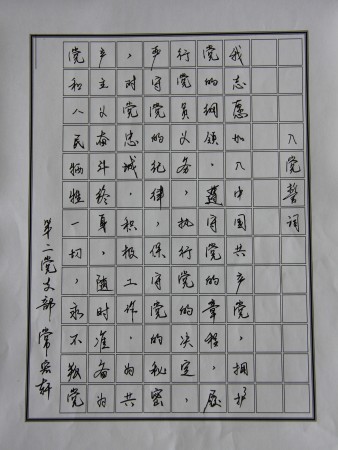 入党誓词
我志愿加入中国共产党，拥护
党的纲领，遵守党的章程，履
行党员义务，执行党的决定，
严守党的纪律，保守党的秘密
，对党忠诚，积极工作，为共
产主义奋斗终身，随时准备为
党和人民牺牲一切，永不叛党
第二党支部 常宏轩